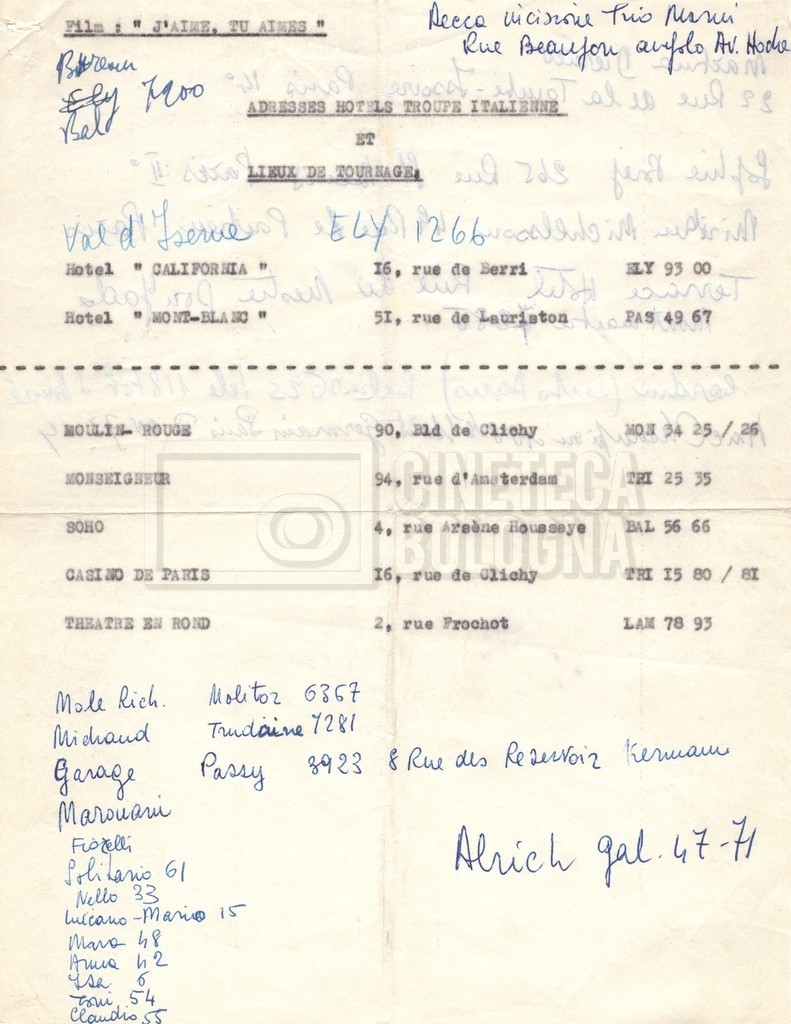 Film : " J'AIME, TU AIMES "
Decca incisione Trio
Rue Beaujon angolo Av. Hoche
Bureau
Ely 7900
Bal
ADRESSES HOTELS TROUPE ITALIENNE
ET
LIEUX DE TOURNAGE.
Val d'Iserne ELY 1266
Hotel " CALIFORNIA " I6, rue de Berri ELY 93 00
Hotel " MONT-BLANC " 5I, rue de Lauriston PAS 49 67
MOULIN- ROUGE 90, Bld de Clichy MON 34 25 / 26
MONSEIGNEUR 94, rue d'Amsterdam TRI 25 35
SOHO 4, rue Arsène Houssaye BAL 56 66
CASINO DE PARIS I6, rue de Clichy TRI I5 80 / 8I
THEATRE EN ROND 2, rue Frochot LAM 78 93
CINETECA
BOLOGNA
Mole Rich. Molitor 6367
Michaud Trudaine 7281
Garage Passy 3923 8 Rue des Reservoir Kermann
Marouani
Fiorelli
Solitario 61
Nello 33
Luciano-Mario 15
Mara 48
Anna 42
Isa 6
Toni 54
Claudio 55
Alrich gal. 47-71